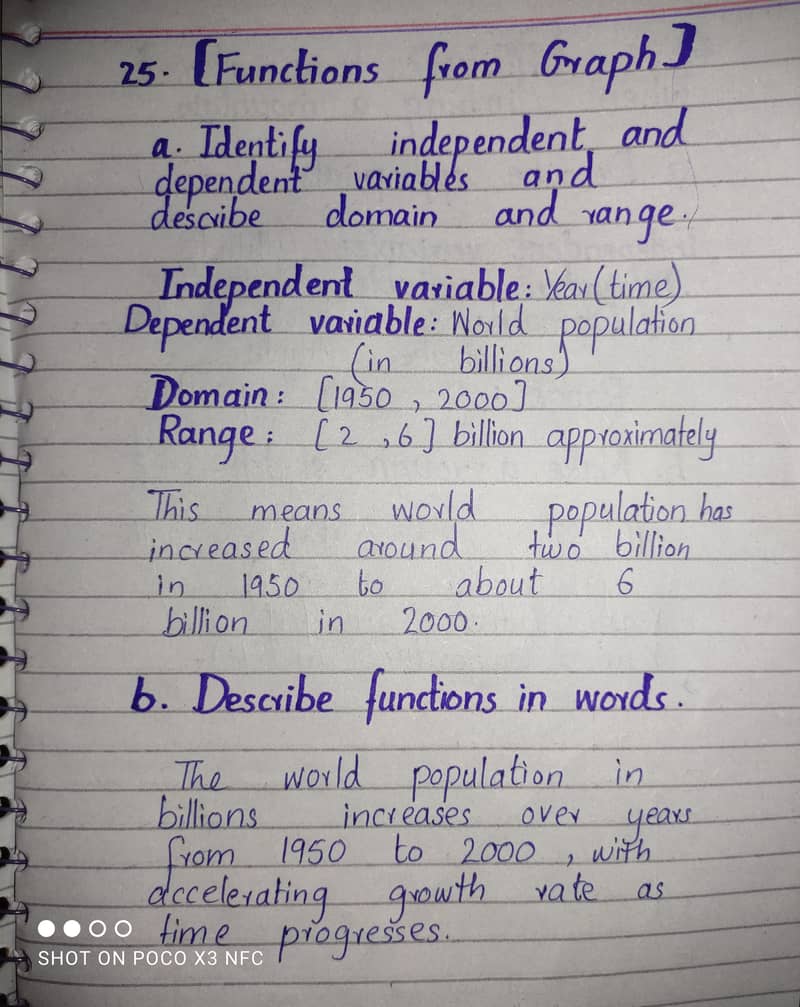 25. [Functions from Graph]
a. Identify independent and
dependent variables and
describe domain and range.
Independent variable: Year (time)
Dependent variable: World population
(in billions)
Domain: [1950, 2000]
Range: [2, 6] billion approximately
This means world population has
increased around two billion
in 1950 to about 6
billion in 2000.
b. Describe functions in words.
The world population in
billions increases over years
from 1950 to 2000, with
accelerating growth rate as
time progresses.
SHOT ON POCO X3 NFC